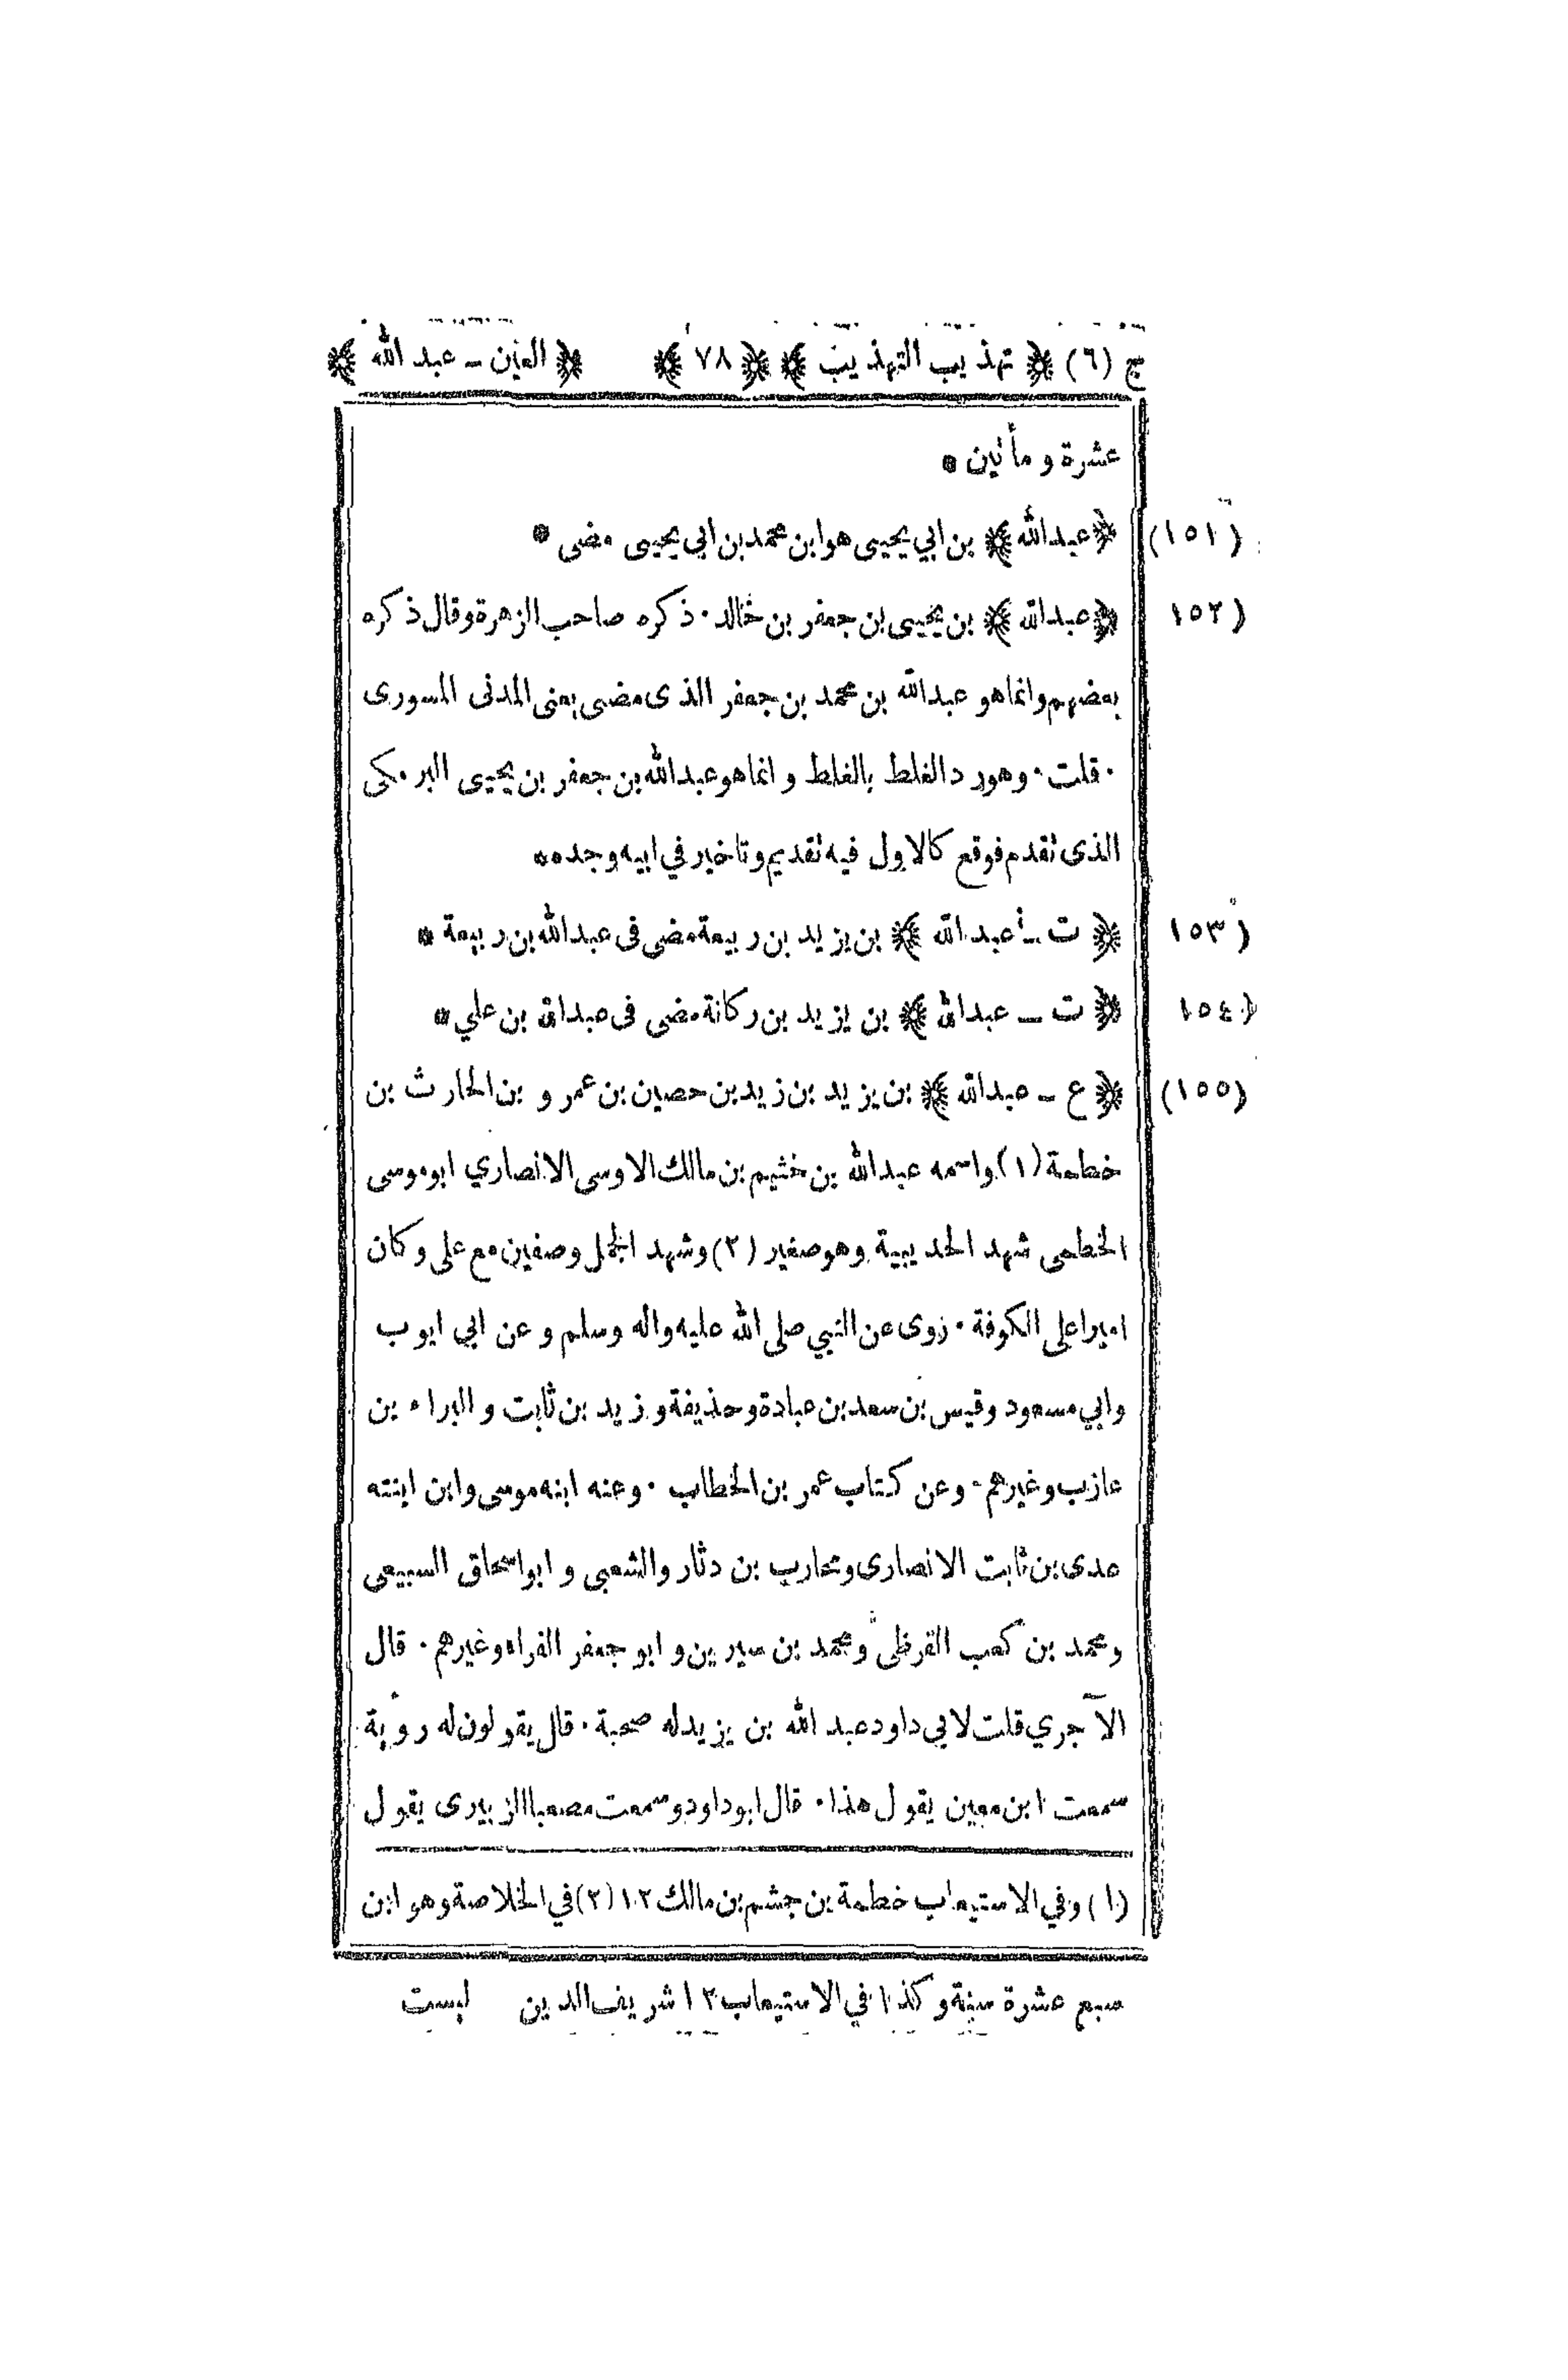 ج (٦) ﴿ تهذيب التهذيب ﴾ ﴿ ٧٨ ﴾ ﴿ العين ـ عبد الله ﴾
عشرة ومأتين *
(١٥١) ﴿ عبد الله ﴾ بن ابي يحيى هو ابن محمد بن ابي يحيى مضى *
(١٥٢ ﴿ عبد الله ﴾ بن يحيى بن جعفر بن خالد · ذكره صاحب الزهرة وقال ذكره
بعضهم وانما هو عبد الله بن محمد بن جعفر الذى مضى يعنى المدنى المسورى
· قلت · وهو رد الغلط بالغلط وانما هو عبد الله بن جعفر بن يحيى البرمكى
الذى تقدم فوقع كالاول فيه تقديم وتاخير في ابيه وجده *
(١٥٣ ﴿ ت ـ عبد الله ﴾ بن يزيد بن ربيعة مضى فى عبد الله بن ربيعة *
(١٥٤ ﴿ ت ـ عبد الله ﴾ بن يزيد بن ركانة مضى فى عبد الله بن علي *
(١٥٥) ﴿ ع ـ عبد الله ﴾ بن يزيد بن زيد بن حصين بن عمرو بن الحارث بن
خطمة (١) واسمه عبد الله بن خثيم بن مالك الاوسى الانصاري ابو موسى
الخطمى شهد الحديبية وهو صغير (٢) وشهد الجمل وصفين مع على وكان
اميرا على الكوفة · روى عن النبي صلى الله عليه واله وسلم وعن ابي ايوب
وابي مسعود وقيس بن سعد بن عبادة وحذيفة وزيد بن ثابت والبراء بن
عازب وغيرهم · وعن كتاب عمر بن الخطاب · وعنه ابنه موسى وابن ابنته
عدى بن ثابت الانصارى ومحارب بن دثار والشعبى وابو اسحاق السبيعى
ومحمد بن كعب القرظى ومحمد بن سيرين وابو جعفر الفراء وغيرهم · قال
الآجري قلت لابي داود عبد الله بن يزيد له صحبة · قال يقولون له روية
سمعت ابن معين يقول هذا · قال ابو داود وسمعت مصعبا الزبيرى يقول
(١) وفي الاستيعاب خطمة بن جشم بن مالك ١٢ (٢) في الخلاصة وهو ابن
سبع عشرة سنة وكذا في الاستيعاب ١٢ شريف الدين ليست